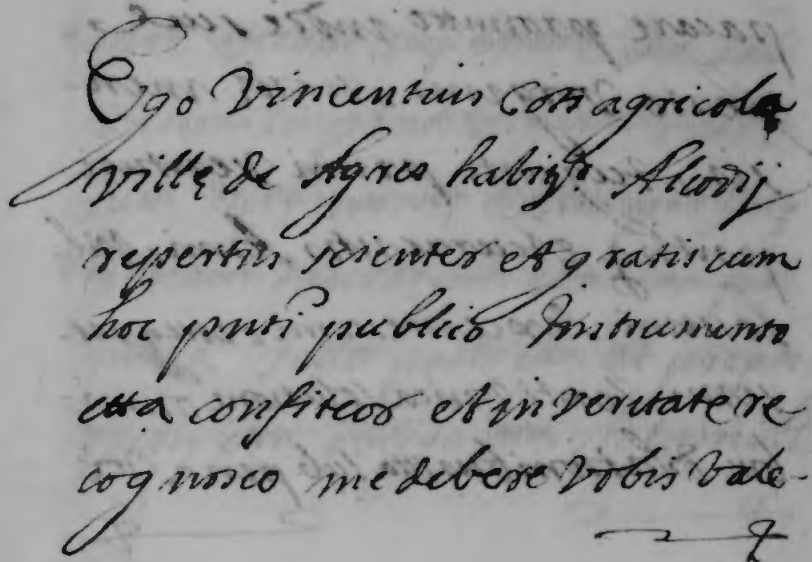 Ego Vincentius Cott agricola
villę de Agres habitr. Alcodij
repertus scienter et gratis cum
hoc pnti publico Instrumento
etta confiteor et in veritate re
cognosco me debere vobis Vale-